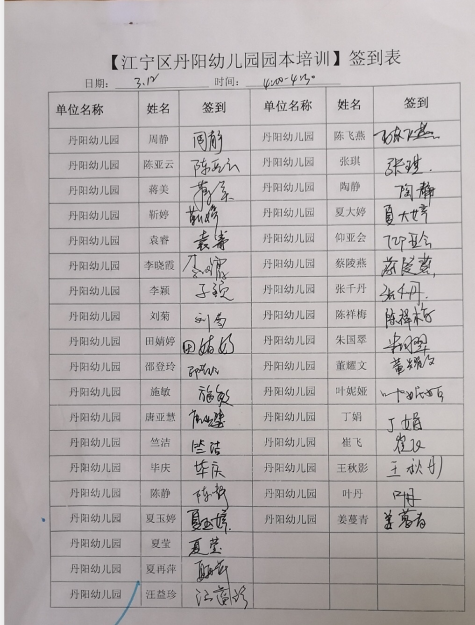 【江宁区丹阳幼儿园园本培训】签到表
日期： 3.12 时间： 4:00-4:30
单位名称 姓名 签到 单位名称 姓名 签到
丹阳幼儿园 周静 周静 丹阳幼儿园 陈飞燕 陈飞燕
丹阳幼儿园 陈亚云 陈亚云 丹阳幼儿园 张琪 张琪.
丹阳幼儿园 蒋美 丹阳幼儿园 陶静 陶静
丹阳幼儿园 靳婷 靳婷 丹阳幼儿园 夏大婷 夏大婷
丹阳幼儿园 袁睿 袁睿 丹阳幼儿园 仰亚会 仰亚会
丹阳幼儿园 李晓霞 李晓霞 丹阳幼儿园 蔡陵燕 蔡陵燕
丹阳幼儿园 李颖 李颖 丹阳幼儿园 张千丹 张千丹.
丹阳幼儿园 刘菊 刘菊 丹阳幼儿园 陈祥梅 陈祥梅
丹阳幼儿园 田婧婷 田婧婷 丹阳幼儿园 朱国翠 朱国翠
丹阳幼儿园 邵登玲 丹阳幼儿园 董耀文 董耀文
丹阳幼儿园 施敏 施敏 丹阳幼儿园 叶妮娅 叶妮娅
丹阳幼儿园 唐亚慧 丹阳幼儿园 丁娟 丁娟
丹阳幼儿园 竺洁 竺洁 丹阳幼儿园 崔飞 崔飞
丹阳幼儿园 毕庆 毕庆 丹阳幼儿园 王秋影 王秋影
丹阳幼儿园 陈静 陈静 丹阳幼儿园 叶丹 叶丹
丹阳幼儿园 夏玉婷 夏玉婷 丹阳幼儿园 姜蔓青 姜蔓青
丹阳幼儿园 夏莹 夏莹
丹阳幼儿园 夏再萍 夏再萍
丹阳幼儿园 汪益珍 汪益珍